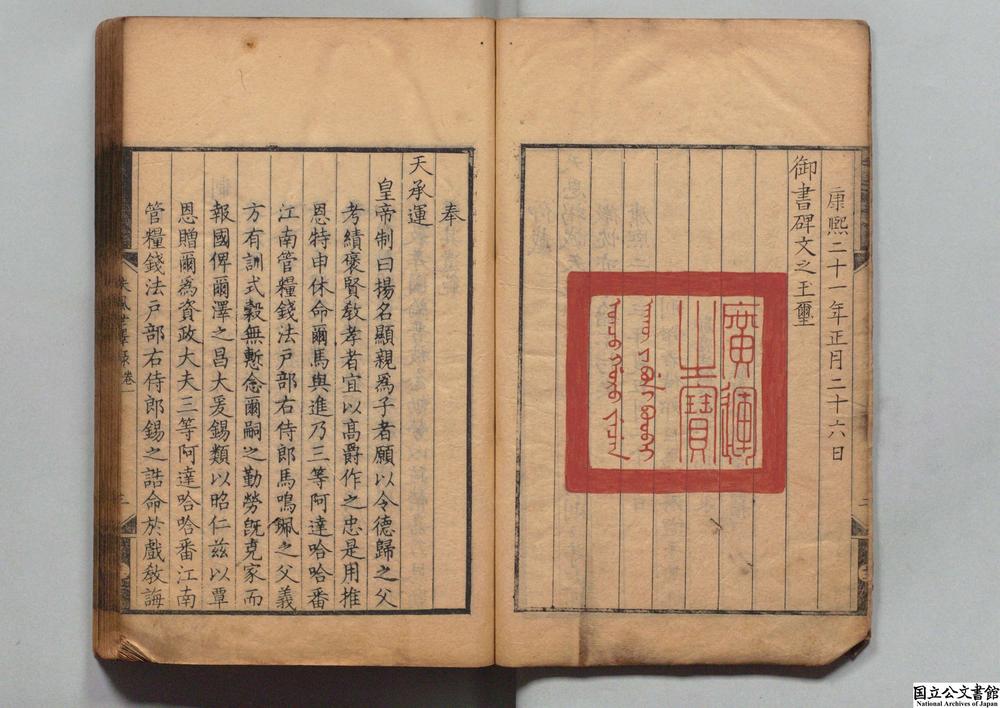 康熙二十一年正月二十六日
御書碑文之玉璽
廣運
之寶
奉
天承運
皇帝制曰揚名顯親為子者願以令德歸之父
考績褒賢敎孝者宜以髙爵作之忠是用推
恩特申休命爾馬與進乃三等阿達哈哈番
江南管糧錢法戶部右侍郎馬鳴珮之父義
方有訓式糓無慙念爾嗣之勤勞旣克家而
報國俾爾澤之昌大爰錫類以昭仁玆以覃
恩贈爾為資政大夫三等阿達哈哈番江南
管糧錢法戶部右侍郎錫之誥命於戲敎誨
国立公文書館
National Archives of Japan